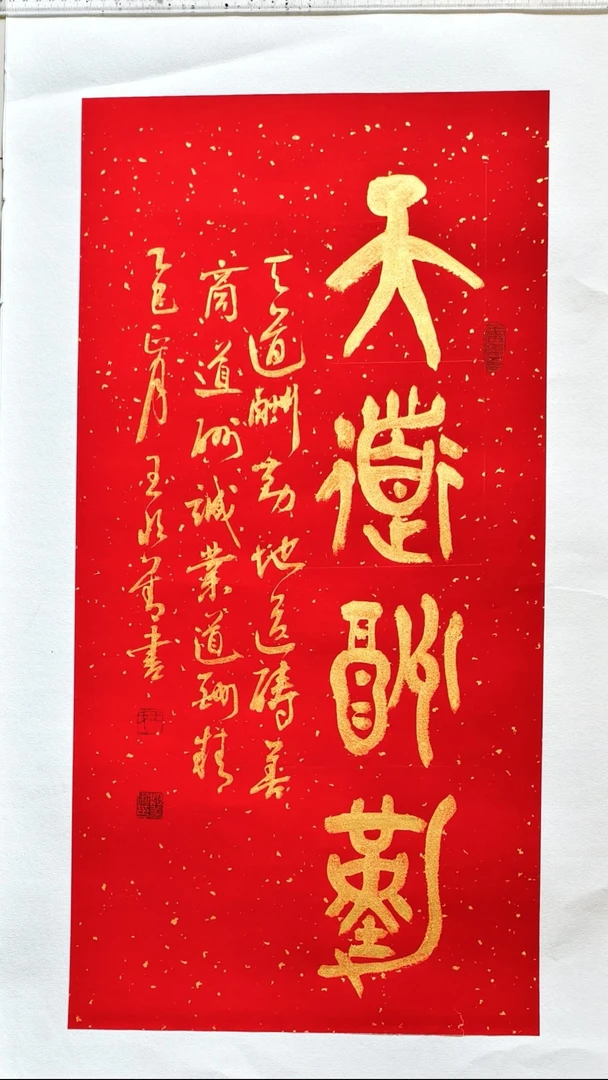 天道酬勤
天道酬勤地道酬善
商道酬诚業道酬精
乙巳正月王 书